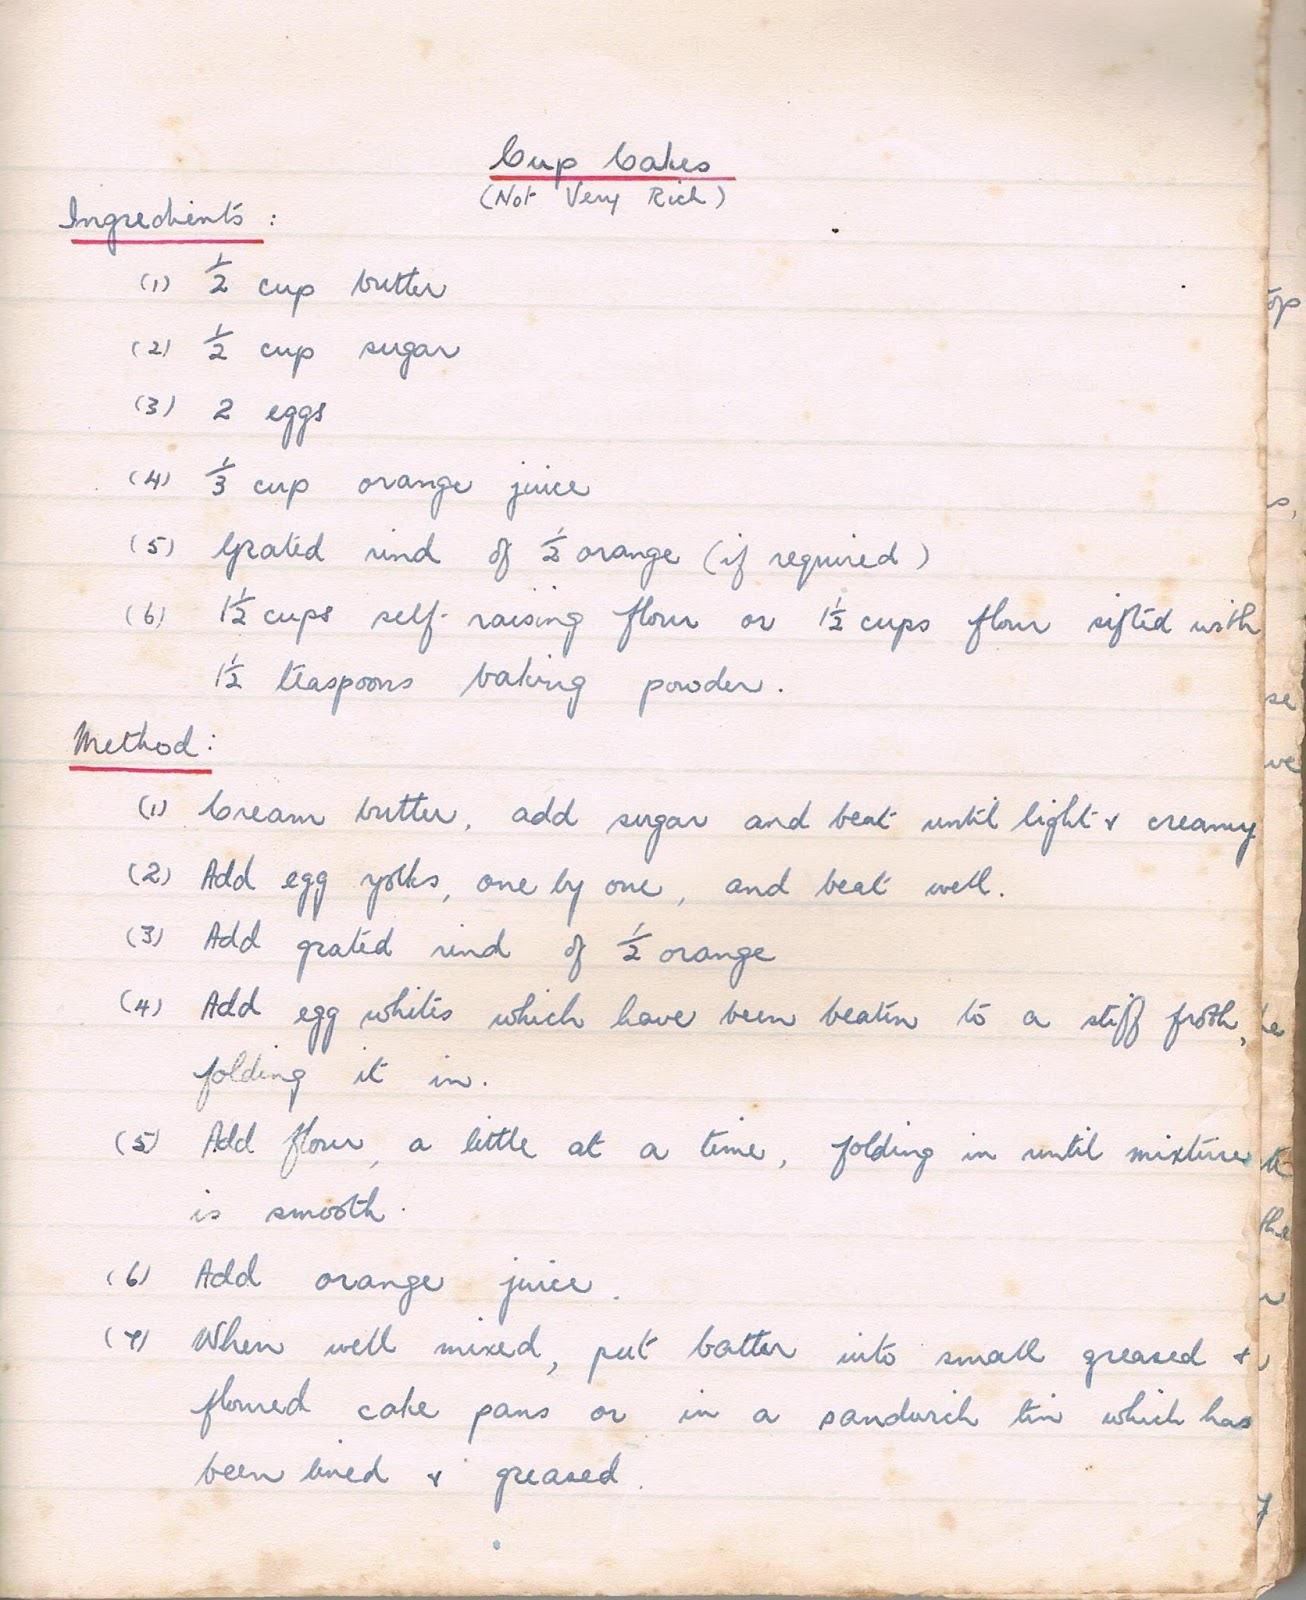 Cup Cakes
(Not Very Rich)
Ingredients :
(1) 1/2 cup butter
(2) 1/2 cup sugar
(3) 2 eggs
(4) 1/3 cup orange juice
(5) Grated rind of 1/2 orange (if required)
(6) 1 1/2 cups self-raising flour or 1 1/2 cups flour sifted with
1 1/2 teaspoons baking powder.
Method :
(1) Cream butter, add sugar and beat until light & creamy
(2) Add egg yolks, one by one, and beat well.
(3) Add grated rind of 1/2 orange
(4) Add egg whites which have been beaten to a stiff froth,
folding it in.
(5) Add flour, a little at a time, folding in until mixture
is smooth.
(6) Add orange juice.
(7) When well mixed, put batter into small greased &
floured cake pans or in a sandwich tin which has
been lined & greased.